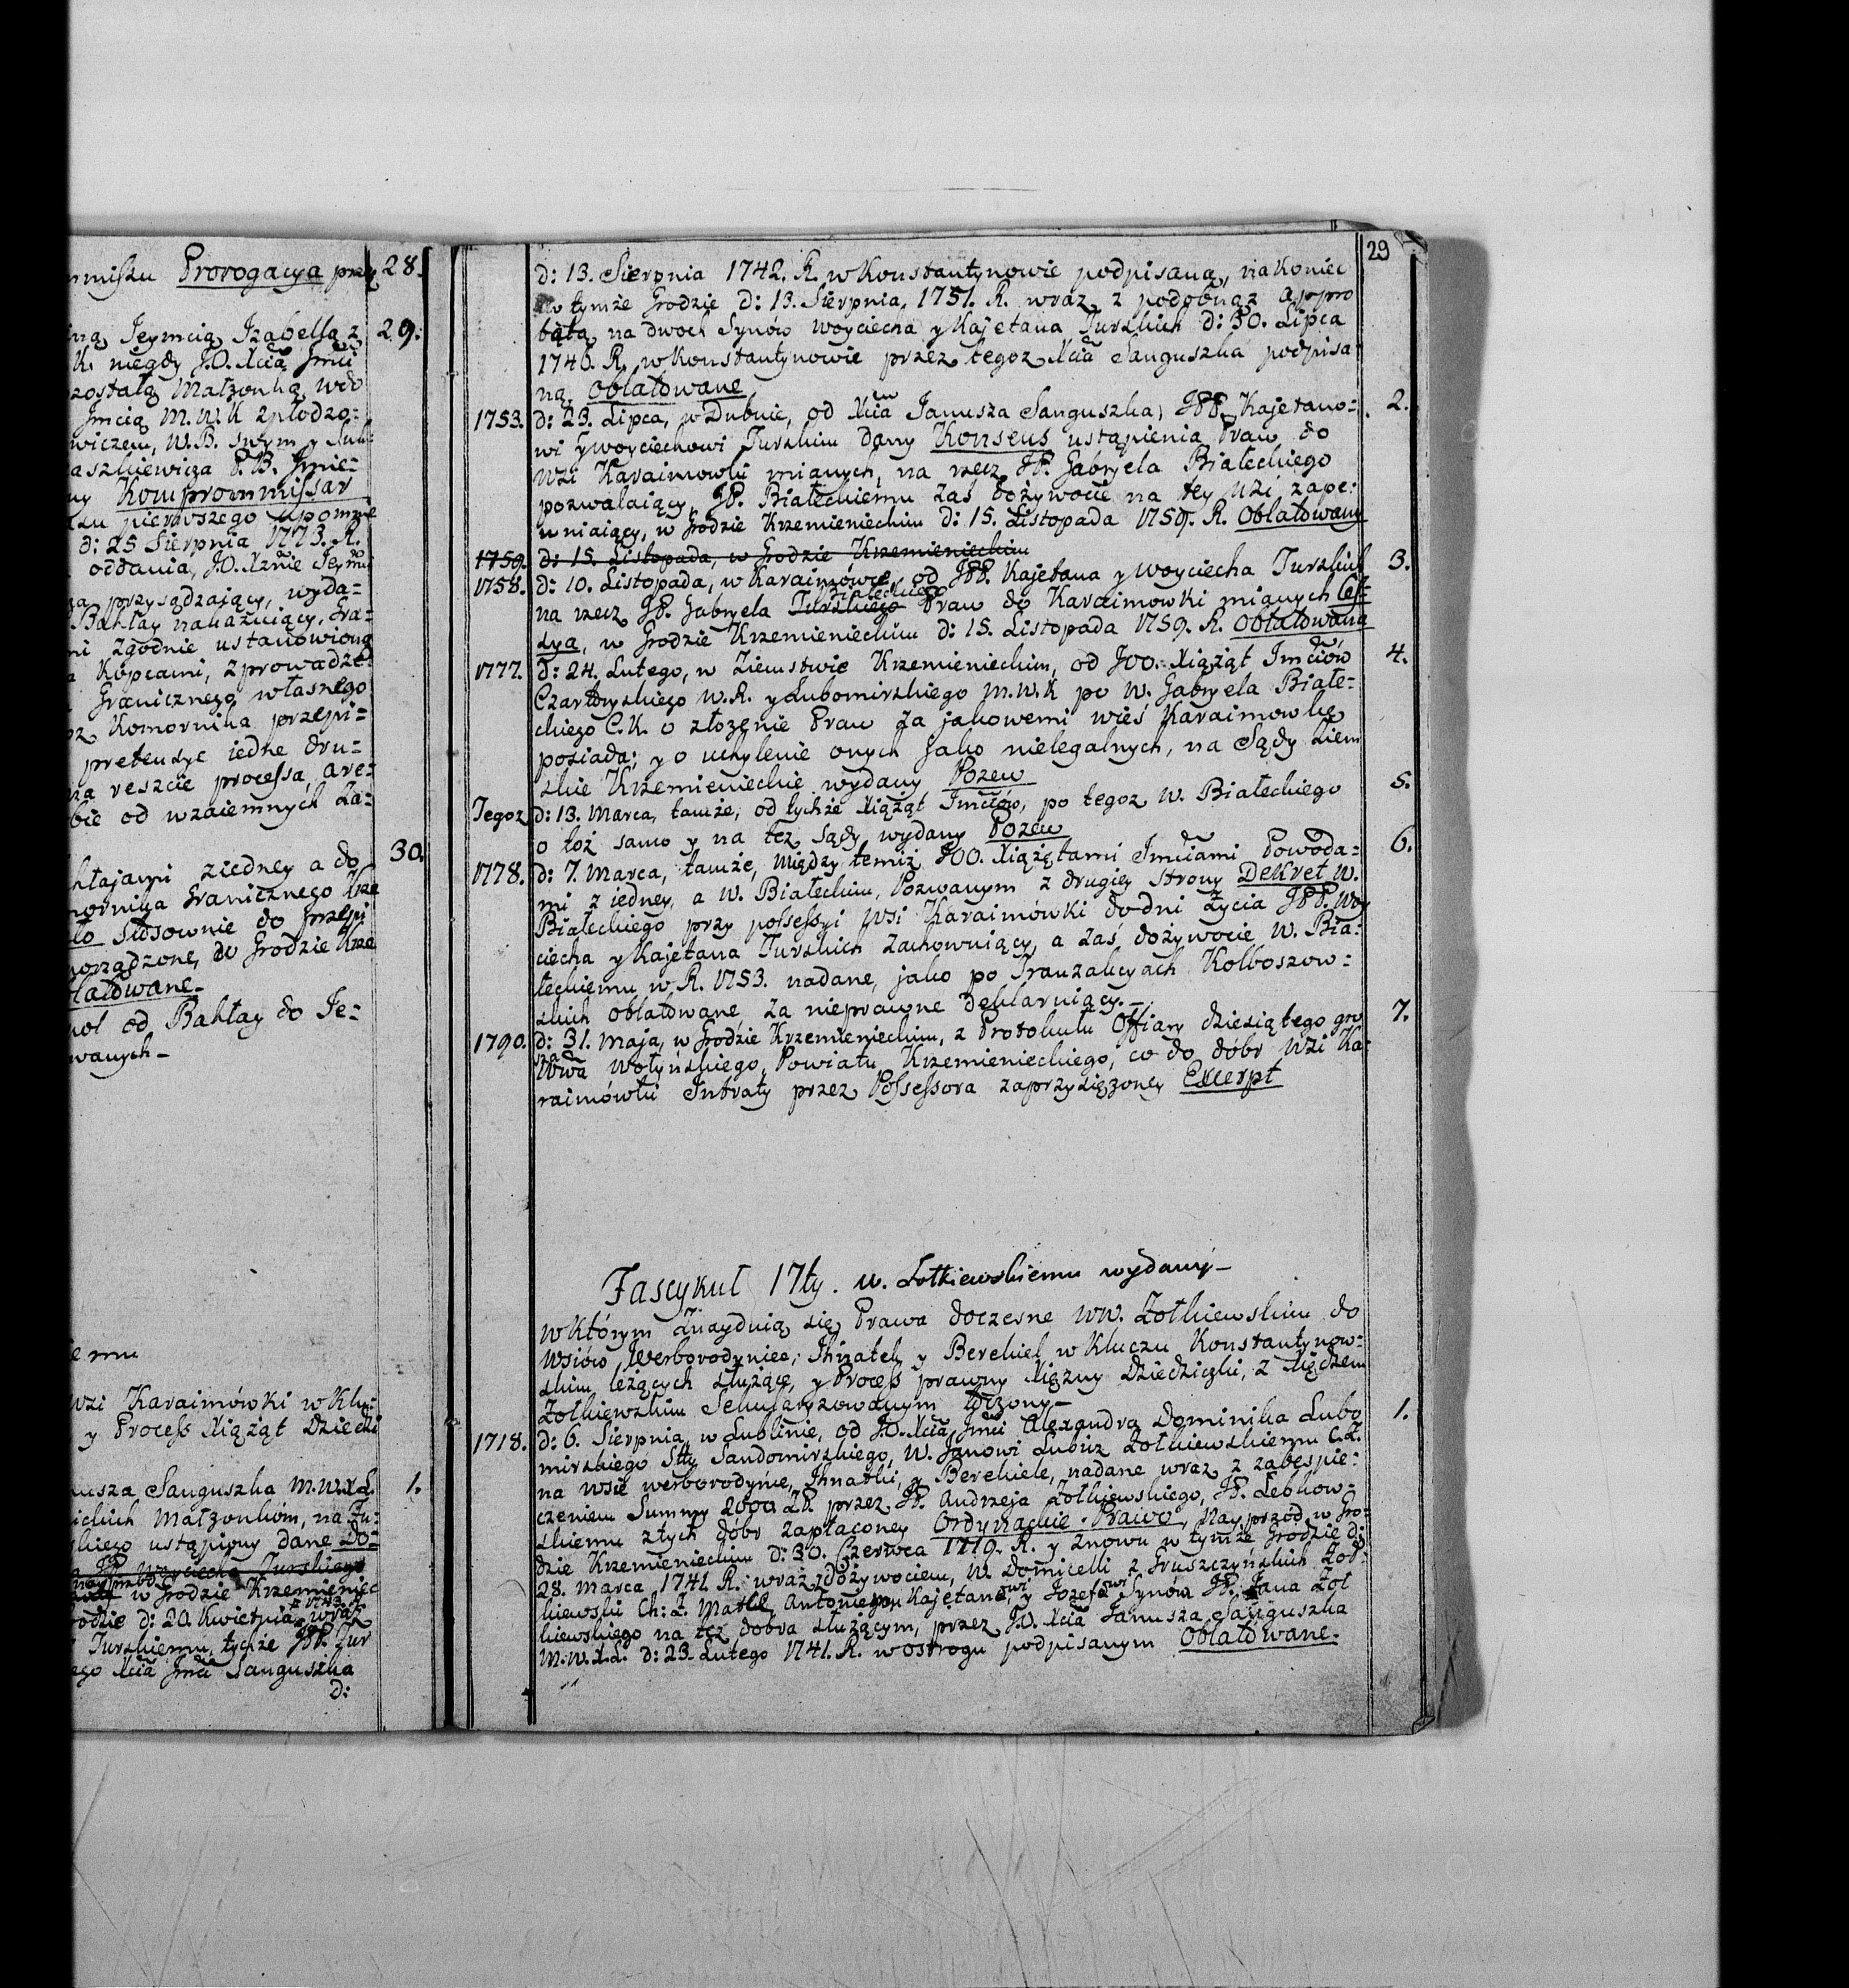 rmissu Prorogacya przy 28.
iną Jeymcią Izabellą z 29.
K. niegdy J.O. Xcia Jmci
zostałą Małżonką, wdo
Jmcią M.W.K spłodzo:
wiczem, W.B. Swym y Sub:
aszkiewicza P.B. Jmie:
ny Kompromissar
pierwszego Upomnie
d: 25 Sierpnia 1773. R.
oddania, J.O. Xznie Jeymci
za przysądzaiący, wyda=
Bakłay nakazuiący, Gra=
ni zgodnie ustanowioną
a Kopcami, zprowadze
Granicznego własnego
oz Komornika przepi=
pretensye iedne dru=
na reszcie processa, are=
bie od wzaiemnych Za:
30.
kłajami ziedney a do
mornika Granicznego Krze
ło stosownie do przepi
porządzone, w Grodzie Krze
blatowane.
pol od Bakłay do Te=
wanych
emu
wsi Karaimówki w Klu:
y Process Xiążąt Dziedzi
nusza Sanguszka M.W.X.L. 1.
ieckich Małżonkom, na Tu=
skiego ustąpiony dane Do=
JP. Woyciecha Turskiego
w Grodzie Krzemieniec
rodzie d: 20. Kwietnia 1743. R. wraz
Turskiemu, tychże JPP. Tur
ego Xcia Jmci Sanguszka
d:
29
d: 13. Sierpnia 1742. R. w Konstantynowie podpisaną, nakoniec
w tymże Grodzie d: 13. Sierpnia, 1751. R. wraz z podobnąż appro
batą na dwoch Synów Woyciecha y Kajetana Turskich d: 30. Lipca
1746. R. w Konstantynowie przez tegoz Xcia Sanguszka podpisa:
ną. Oblatowane
1753. d: 23. Lipca, w Dubnie, od Xcia Janusza Sanguszka, JPP. Kajetano= 2.
wi y Woyciechowi Turskim dany Konsens ustąpienia Praw do
Wsi Karaimowki mianych, na rzecz JP. Gabryela Białeckiego
pozwalaiący, JP. Białeckiemu zaś dożywocie na tey Wsi zape:
wniaiący, w Grodzie Krzemienieckim d: 15. Listopada 1759. R. Oblatowany
1759. d: 15. Listopada, w Grodzie Krzemienieckim
1758. d: 10. Listopada, w Karaimówce, od JPP. Kajetana y Woyciecha Turskich 3.
na rzecz JP. Gabryela Turskiego Białeckiego Praw do Karaimowki mianych Ces=
sya, w Grodzie Krzemienieckim d: 15. Listopada 1759. R. Oblatowana
1777. d: 24. Lutego, w Ziemstwie Krzemienieckim, od JOO. Xiążąt Jmciów 4.
Czartoryskiego W.R. y Lubomirskiego M.W.K po W. Gabryela Białe=
ckiego C.K. o złożenie Praw za jakowemi wieś Karaimowkę
posiada; y o uchylenie onych jako nielegalnych, na Sądy Ziem
skie Krzemienieckie wydany Pozew
Tegoz d: 13. Marca, tamże, od tychże Xiążąt Jmciów, po tegoz W. Białeckiego 5.
o toż samo y na też sądy wydany Pozew
1778. d: 7. Marca, tamże, między temiż JOO. Xiążętami Jmciami Powoda= 6.
mi z iedney, a W. Białeckim, Pozwanym z drugiey strony Dekret W.
Białeckiego przy possessyi Wsi Karaimówki do dni życia JPP. Woy
ciecha y Kajetana Turskich zachowuiący, a zaś dożywocie W. Bia:
łeckiemu w R. 1753. nadane, jako po Tranzakcyach Kolboszow=
skich oblatowane za nieprawne deklaruiący.
1790. d: 31. Maja, w Grodzie Krzemienieckim, z Protokułu Offiary dziesiątego gro 7.
sza Wdwa Wołyńskiego, Powiatu Krzemienieckiego, co do dóbr Wsi Ka:
raimówki Intraty przez Possessora zaprzysiężoney Excerpt
Fascykuł 17ty. W. Żołkiewskiemu wydany
w Którym Znayduią się Prawa doczesne WW. Żołkiewskim do
Wsiów, Werborodyniec, Ihnatek y Berekiel w Kluczu Konstantynow=
skim leżących służące, y Process prawny Xiężny Dziedziczki, z Xiędzem
Żołkiewskim Sekularyzowanym toczony
1718. d: 6. Sierpnia, w Lublinie, od J.O. Xcia Jmci Alexandra Dominika Lubo 1.
mirskiego Stty Sandomirskiego, W. Janowi Lubicz Żołkiewskiemu C.Ż.
na Wsie Werborodynce, Ihnatki, y Berekiele, nadane wraz z zabespie:
czeniem Summy 2000 ZP. przez JP. Andrzeja Żołkiewskiego, JP. Lebkow=
skiemu z tych dóbr zapłaconey Ordynackie Prawo, Nayprzód w Gro:
dzie Krzemienieckim d: 30. Czerwca 1719. R. y znowu w tymże Grodzie d:
28. Marca 1741. R. wraz z dożywociem, W. Domicelli z Gruszczyńskich Żoł=
kiewski Ch: Ż. Matce, Antoniemu Kajetanowi, y Jozefowi Synóm JP. Jana Żoł
kiewskiego na też dobra służącym, przez J.O. Xcia Janusza Sanguszka
M.W.X.L. d: 23. Lutego 1741. R. w Ostrogu podpisanym Oblatowane.